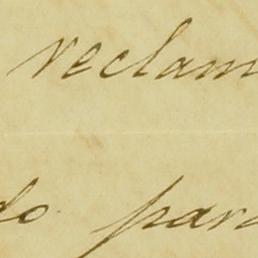 reclam
do para